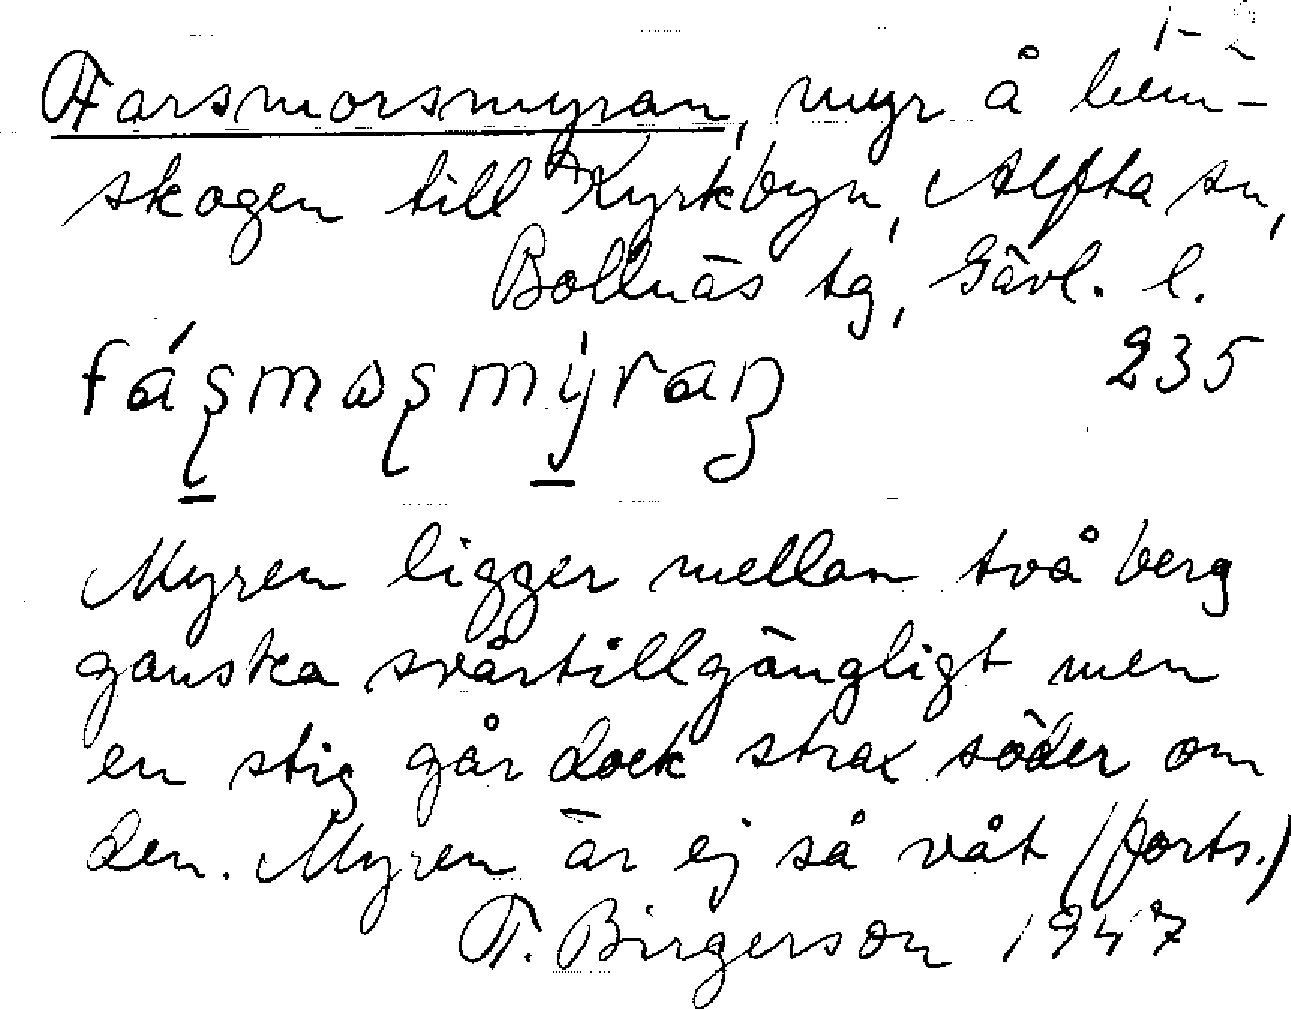 1-2
Farsmorsmyran, myr å hem-
skogen till Kyrkbyn, Alfta sn,
Bollnäs tg, Gävl. l.
235
Myren ligger mellan två berg
ganska svårtillgängligt men
en stig går dock strax söder om
den. Myren är ej så våt (forts.)
F. Birgerson 1947